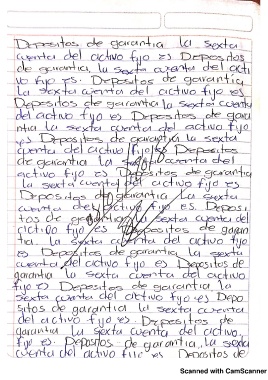 Depositos de garantia la sexta
cuenta del activo fijo es Depositos
de garantia. la sexta cuenta del acti
vo fijo es. Depositos de garantia
la sexta cuenta del activo fijo es
Depositos de garantia la sexta cuenta
del activo fijo es Depositos de gara
ntia la sexta cuenta del activo fijo
es Depositos de garantia la sexta
cuenta del activo fijo es Depositos
de garantia la sexta cuenta del
activo fijo es Depositos de garantia
la sexta cuenta del activo fijo es
Depositos de garantia la sexta
cuenta del activo fijo es. Deposi
tos de garantia la sexta cuenta del
activo fijo es Depositos de garan
tia. la sexta cuenta del activo fijo
es Depositos de garantia la sexta
cuenta del activo fijo es Depositos de
garantia la sexta cuenta del activo
fijo es Depositos de garantia. la
sexta cuenta del activo fijo es Depo
sitos de garantia la sexta cuenta del
activo fijo es. Depositos de
garantia la sexta cuenta del activo.
fijo es. Depositos de garantia. la sexta
cuenta del activo fijo es Depositos de
Scanned with CamScanner